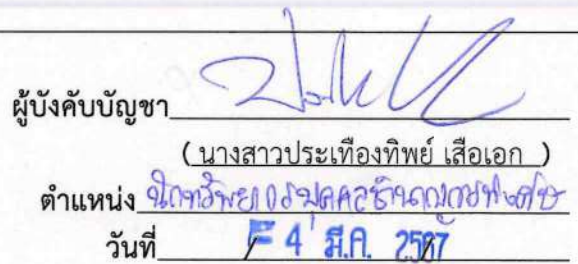 ผู้บังคับบัญชา
( นางสาวประเทืองทิพย์ เสือเอก )
ตำแหน่ง นักทรัพยากรบุคคลชำนาญการพิเศษ
วันที่ 4 มี.ค. 2567